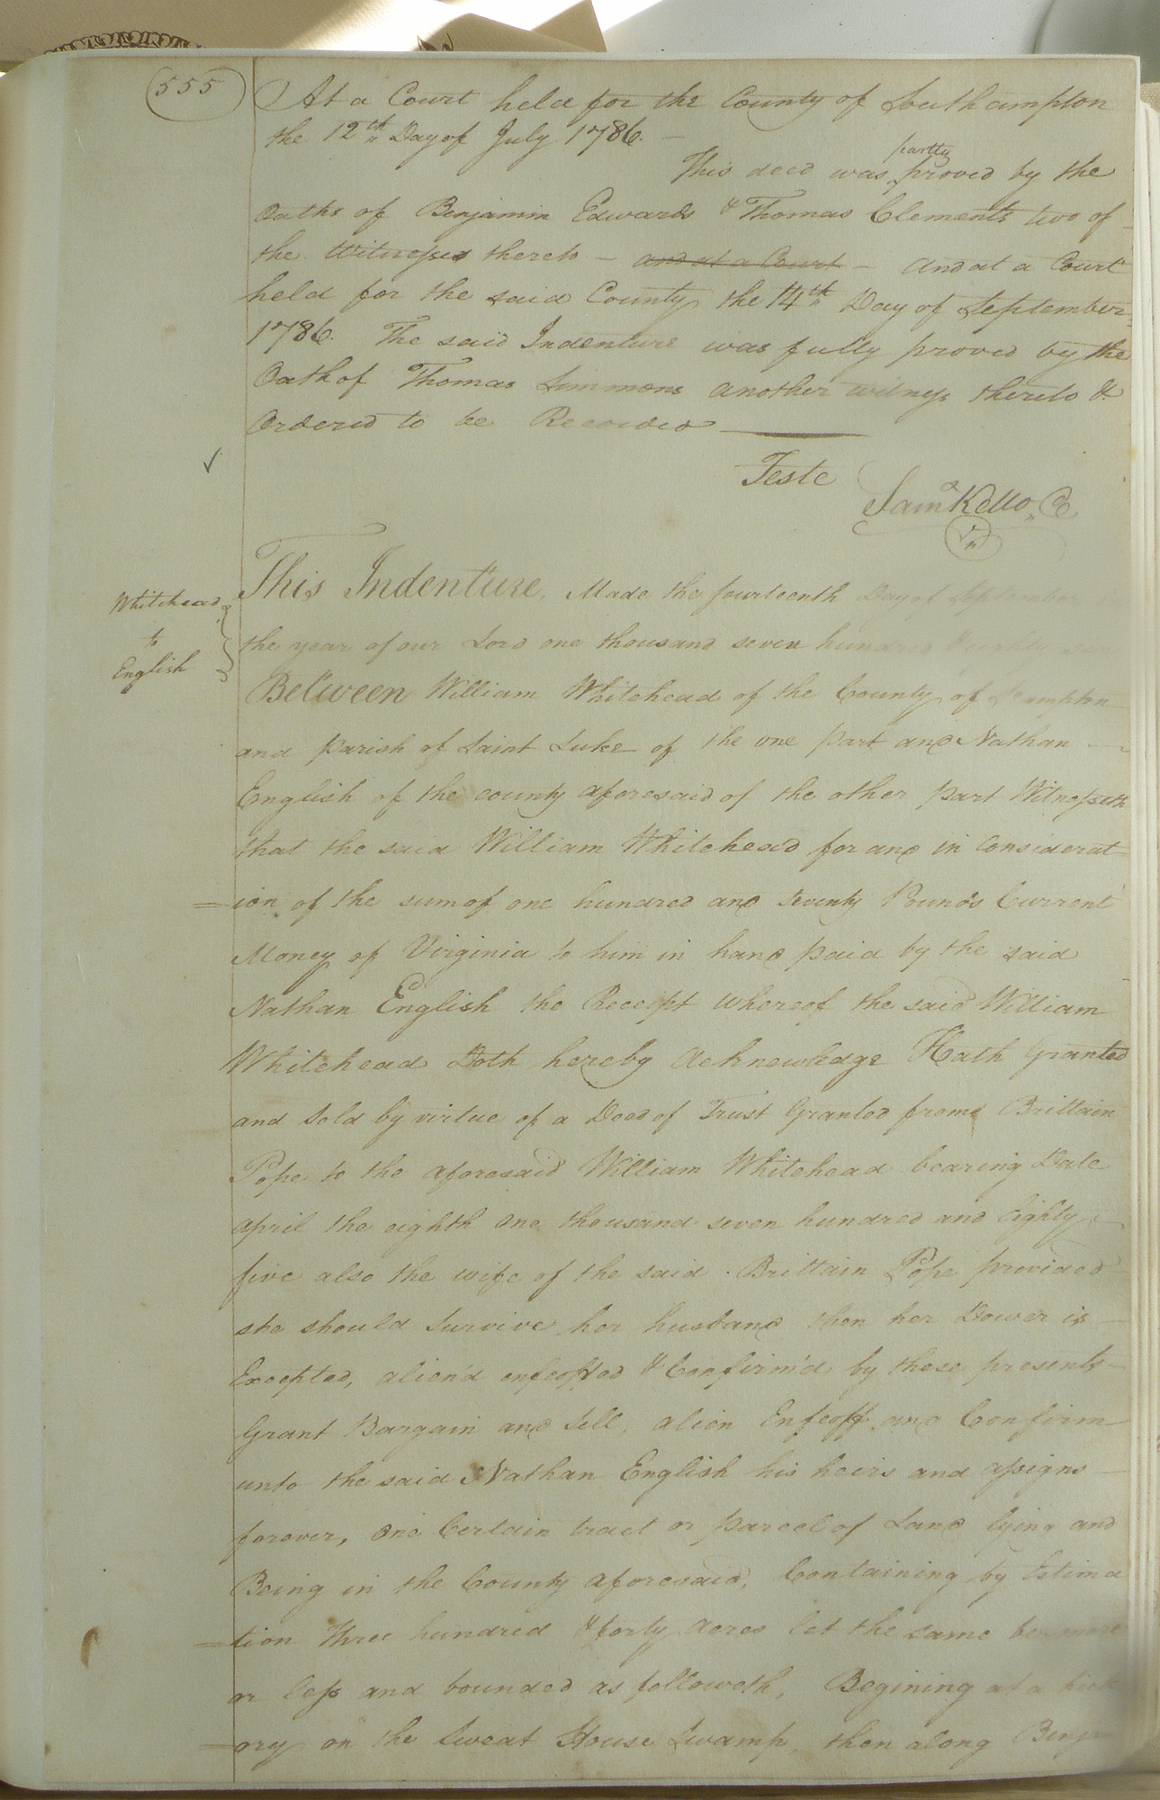 555
At a Court held for the County of Southampton
the 12th Day of July 1786. —
partly
This deed was proved by the
Oaths of Benjamin Edwards & Thomas Clements two of
the Witnesses thereto — and at a Court — And at a Court
held for the said County the 14th Day of September
1786. The said Indenture was fully proved by the
Oath of Thomas Simmons another witness thereto &
Ordered to be Recorded
Teste
Saml Kello, C
Whitehead
to
English
This Indenture, Made the fourteenth Day of September
the year of our Lord one thousand seven hundred & eighty
Between William Whitehead of the County of Sampton
and parish of Saint Luke of the one part and Nathan —
English of the county aforesaid of the other part Witnesseth
that the said William Whitehead for and in Considerat
=ion of the sum of one hundred and seventy Pounds Current
Money of Virginia to him in hand paid by the said
Nathan English the Receipt whereof the said William
Whitehead Doth hereby Acknowledge Hath Granted
and Sold by virtue of a Deed of Trust Granted from Brittain
Pope to the aforesaid William Whitehead bearing Date
april the eighth one thousand seven hundred and Eighty
five also the wife of the said Brittain Pope provided
she should Survive her husband then her Dower is —
Excepted, alien'd enfeoffed & Confirm'd by these presents —
Grant Bargain and Sell, alien Enfeoff and Confirm
unto the said Nathan English his heirs and assigns —
forever, One Certain tract or parcel of Land lying and
Being in the County aforesaid, Containing by Estima
=tion Three hundred & forty Acres let the same be more
or less and bounded as followeth, Begining at a hick
=ory on the Sweat House Swamp, then along